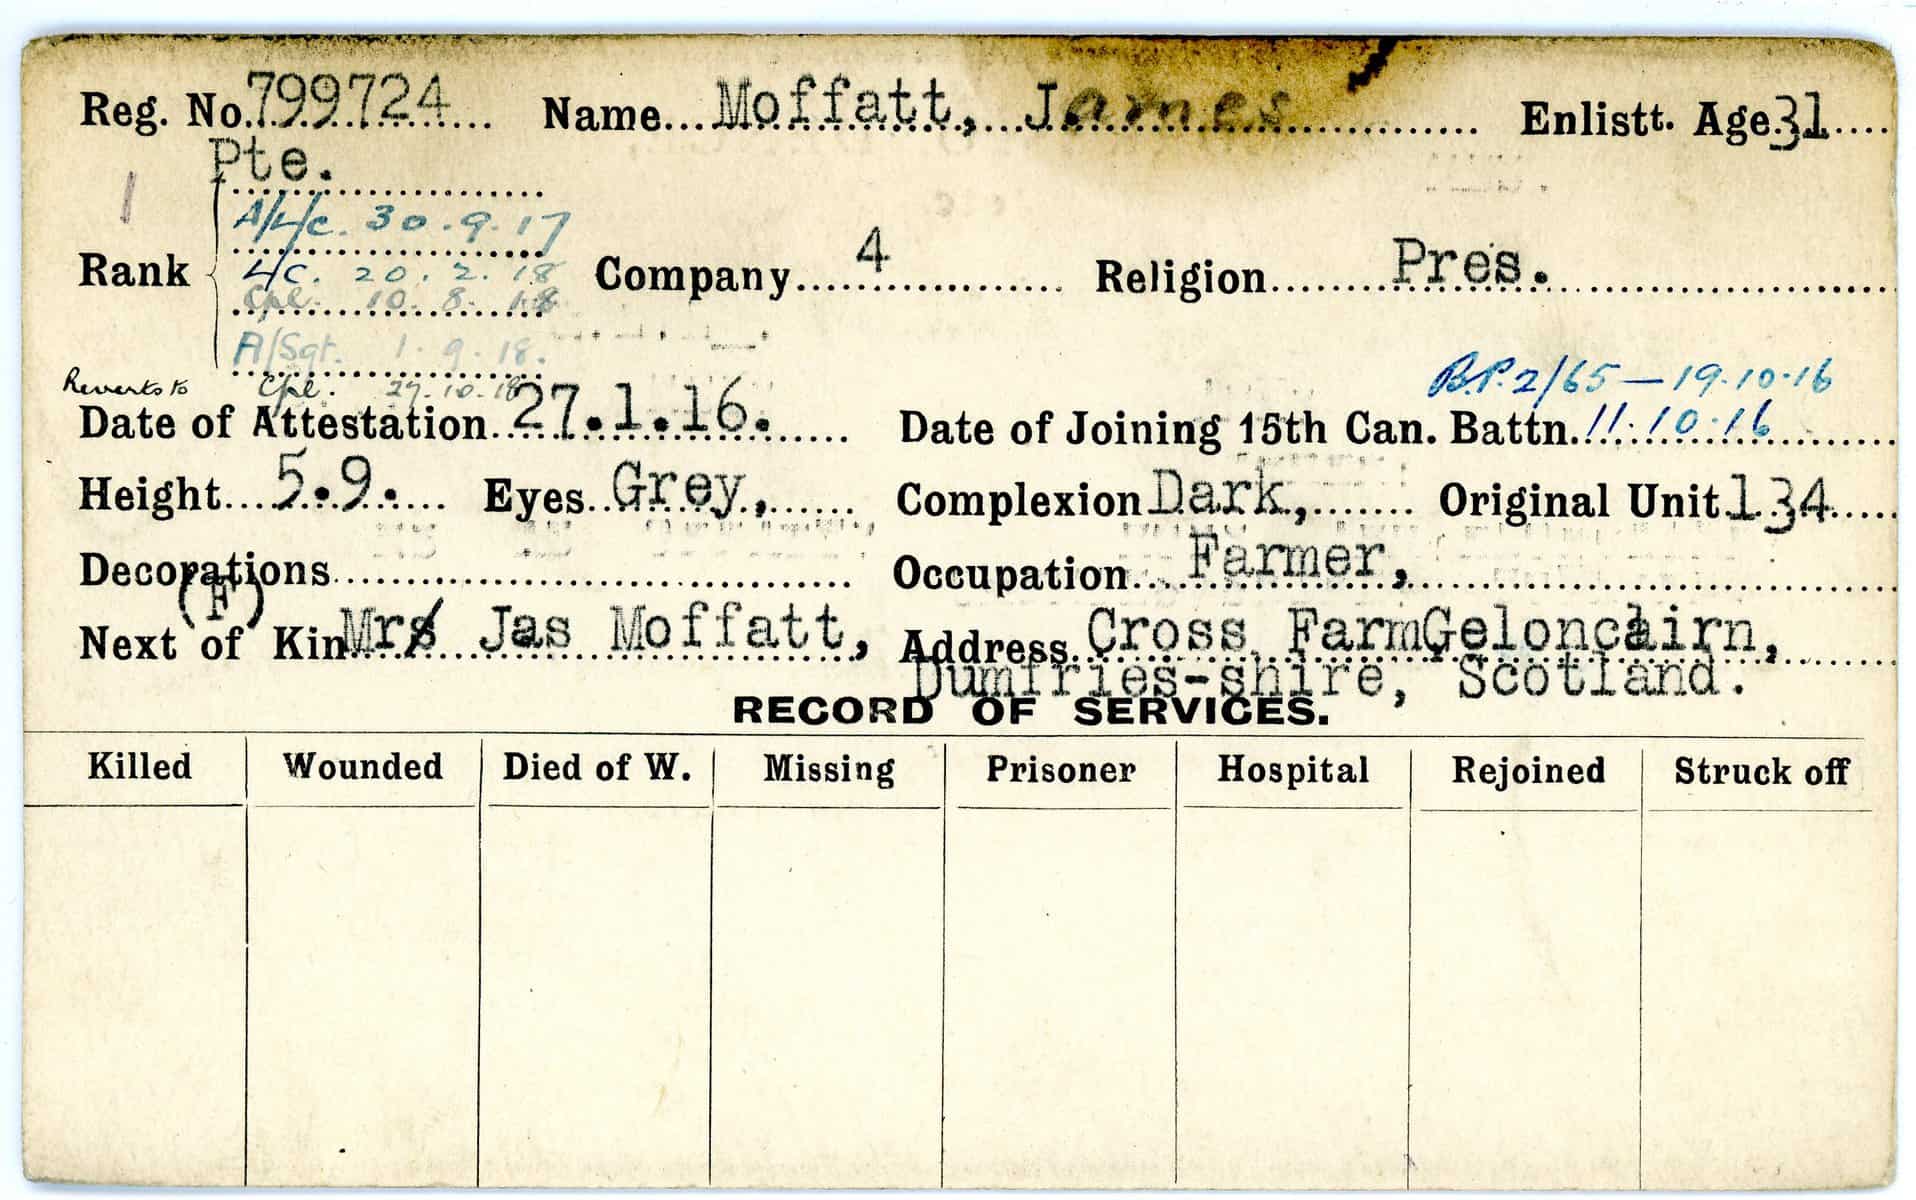 Reg. No. 799724 Name Moffatt, James Enlistt. Age 31
Pte.
1
A/L/C. 30.9.17
Rank L/C. 20.2.18 Company 4 Religion Pres.
Cpl. 10.8.18
A/Sgt. 1.9.18.
Reverts to Cpl. 27.10.18 B.P.2/65 — 19.10.16
Date of Attestation 27.1.16. Date of Joining 15th Can. Battn. 11.10.16
Height 5.9. Eyes Grey, Complexion Dark, Original Unit 134
Decorations Occupation Farmer,
(F)
Next of Kin Mrs Jas Moffatt, Address Cross Farm Geloncairn,
Dumfries-shire, Scotland.
RECORD OF SERVICES.
Killed Wounded Died of W. Missing Prisoner Hospital Rejoined Struck off